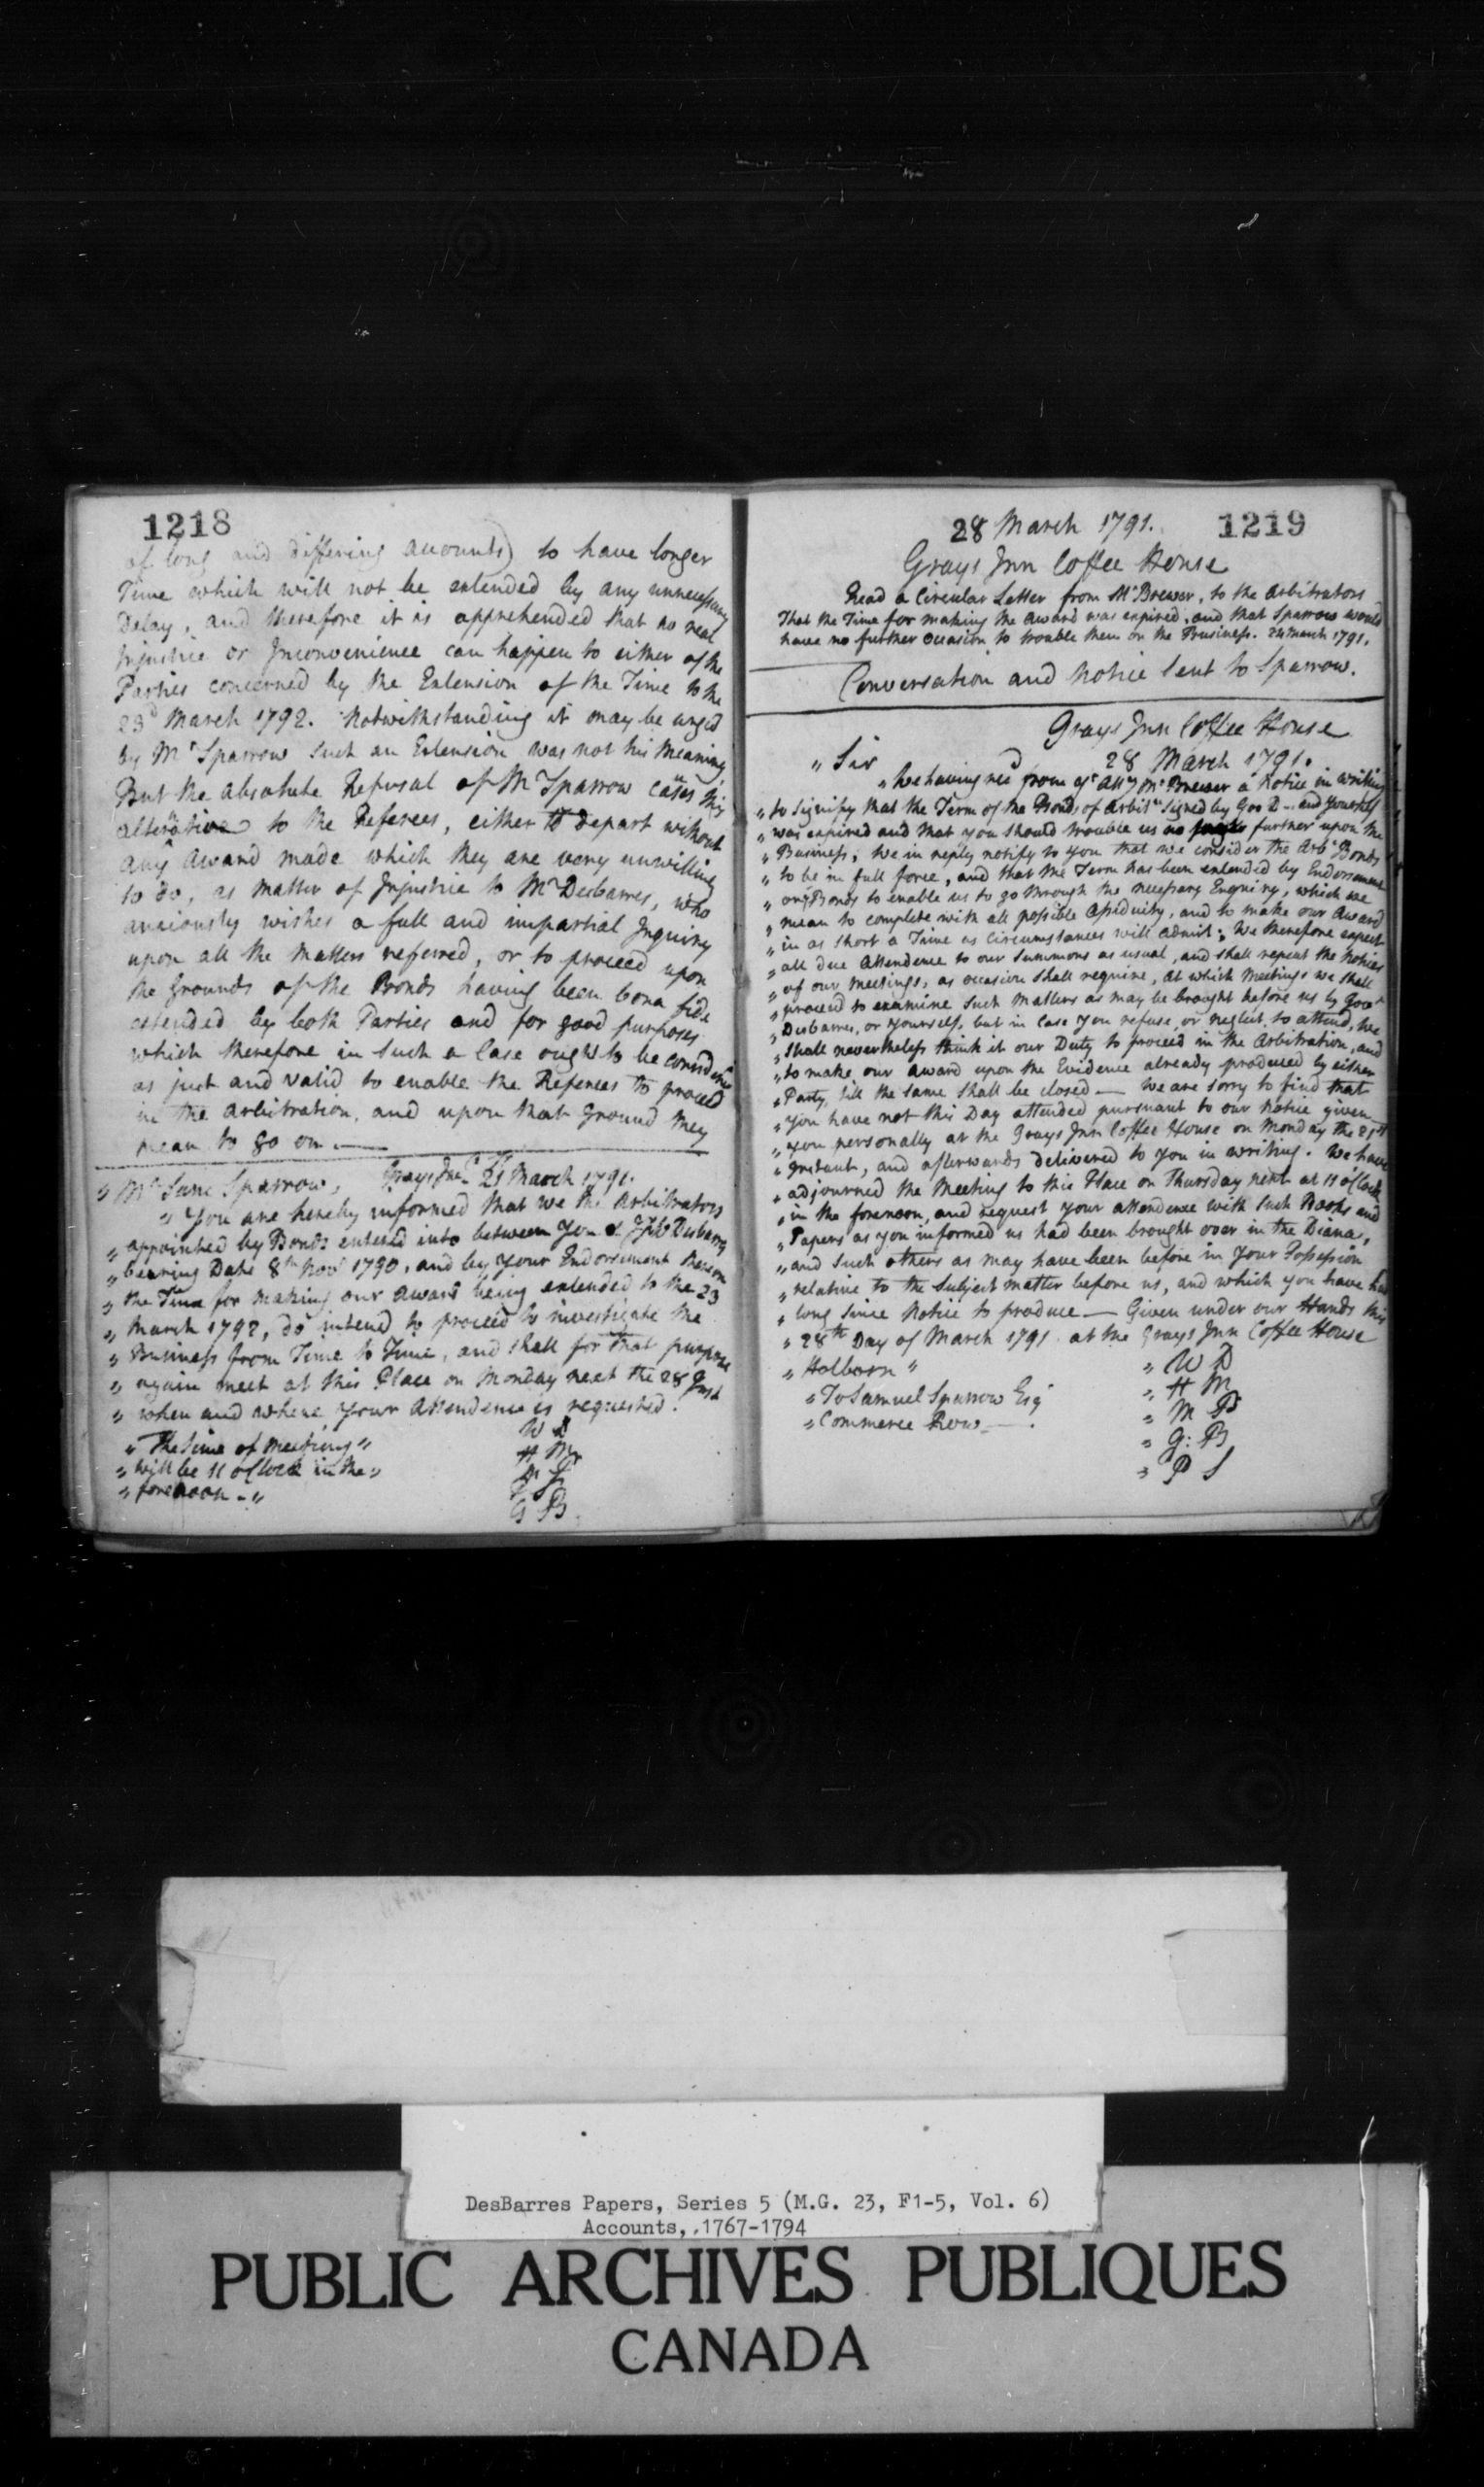 1218
of long and differing accounts) to have longer
Time which will not be extended by any unnecessary
Delay, and therefore it is apprehended that no real
Injustice or Inconvenience can happen to either of the
Parties concerned by the Extension of the Time to the
23d March 1792. Notwithstanding it may be urged
by Mr Sparrow such an Extension was not his Meaning
But the absolute Refusal of Mr Sparrow
alterative to the Referees, either to depart without
any award made which they are very unwilling
to do, as matter of Injustice to Mr Desbarres, who
anxiously wishes a full and impartial Inquiry
upon all the Matters referred, or to proceed upon
the Grounds of the Bonds having been bona fide
extended by both Parties and for good purposes
which therefore in such a Case ought to be considered
as just and valid to enable the Referees to proceed
in the arbitration, and upon that Ground they
mean to go on —
Grays Inn 21 March 1791.
„ Mr Saml Sparrow,
„ You are hereby informed that we the Arbitrators
„ appointed by Bonds entered into between You & Desbarres
„ bearing Date 8th Novr 1790, and by your Endorsement thereon
„ the Time for making our award being extended to the 23
„ March 1792, do intend to proceed to investigate the
„ Business from Time to Time, and shall for that purpose
„ again meet at this Place on Monday next the 28 Inst
„ when and where your attendence is requested.
„ The time of meeting „
„ will be 11 oClock in the „
„ forenoon - „
W D
H M
G B.
28 March 1791. 1219
Grays Inn Coffee House
Read a Circular Letter from Mr Brewer, to the Arbitrators
That the Time for making the award was expired, and that Sparrow would
have no further occasion to trouble them on the Business. 24 march 1791.
Conversation and Notice sent to Sparrow.
Grays Inn Coffee House
28 March 1791.
„ Sir
„ We having recd from yr Atty Mr Brewer a Notice in writing
„ to signify that the Term of the Bonds of Arbitn signed by Gov D — and yourself
„ was expired and that you should trouble us no further upon the
„ Business, We in reply notify to you that we consider the Arbn Bonds
„ to be in full force, and that the Term has been extended by Endorsement
„ on ye Bonds to enable us to go through the necessary Enquiry, which we
„ mean to complete with all possible Assiduity, and to make our Award
„ in as short a Time as Circumstances will admit; We therefore expect
„ all due Attendence to our Summons as usual, and shall repeat the Notices
„ of our Meetings, as occasion shall require, at which Meetings we shall
„ proceed to examine such Matters as may be brought before us by Govr
„ Desbarres, or yourself, but in Case you refuse, or neglect to attend, we
„ shall nevertheless think it our Duty to proceed in the Arbitration, and
„ to make our award upon the Evidence already produced by either
„ Party, till the same shall be closed — We are sorry to find that
„ you have not this Day attended pursuant to our Notice given
„ you personally at the Grays Inn Coffee House on Monday the 21st
„ Instant, and afterwards delivered to you in writing. We have
„ adjourned the Meeting to this Place on Thursday next at 11 oClock
„ in the forenoon, and request your attendence with such Books and
„ Papers as you informed us had been brought over in the Diana,
„ and such others as may have been before in your Possession
„ relative to the subject matter before us, and which you have had
„ long since Notice to produce — Given under our Hands this
„ 28th Day of March 1791 at the Grays Inn Coffee House
„ Holborn „
„ To Samuel Sparrow Esqr
„ Commerce Row — .
„ W D
„ H M
„ M P
„ G: B
„ P S
DesBarres Papers, Series 5 (M.G. 23, F1-5, Vol. 6)
Accounts, 1767-1794
PUBLIC ARCHIVES PUBLIQUES
CANADA